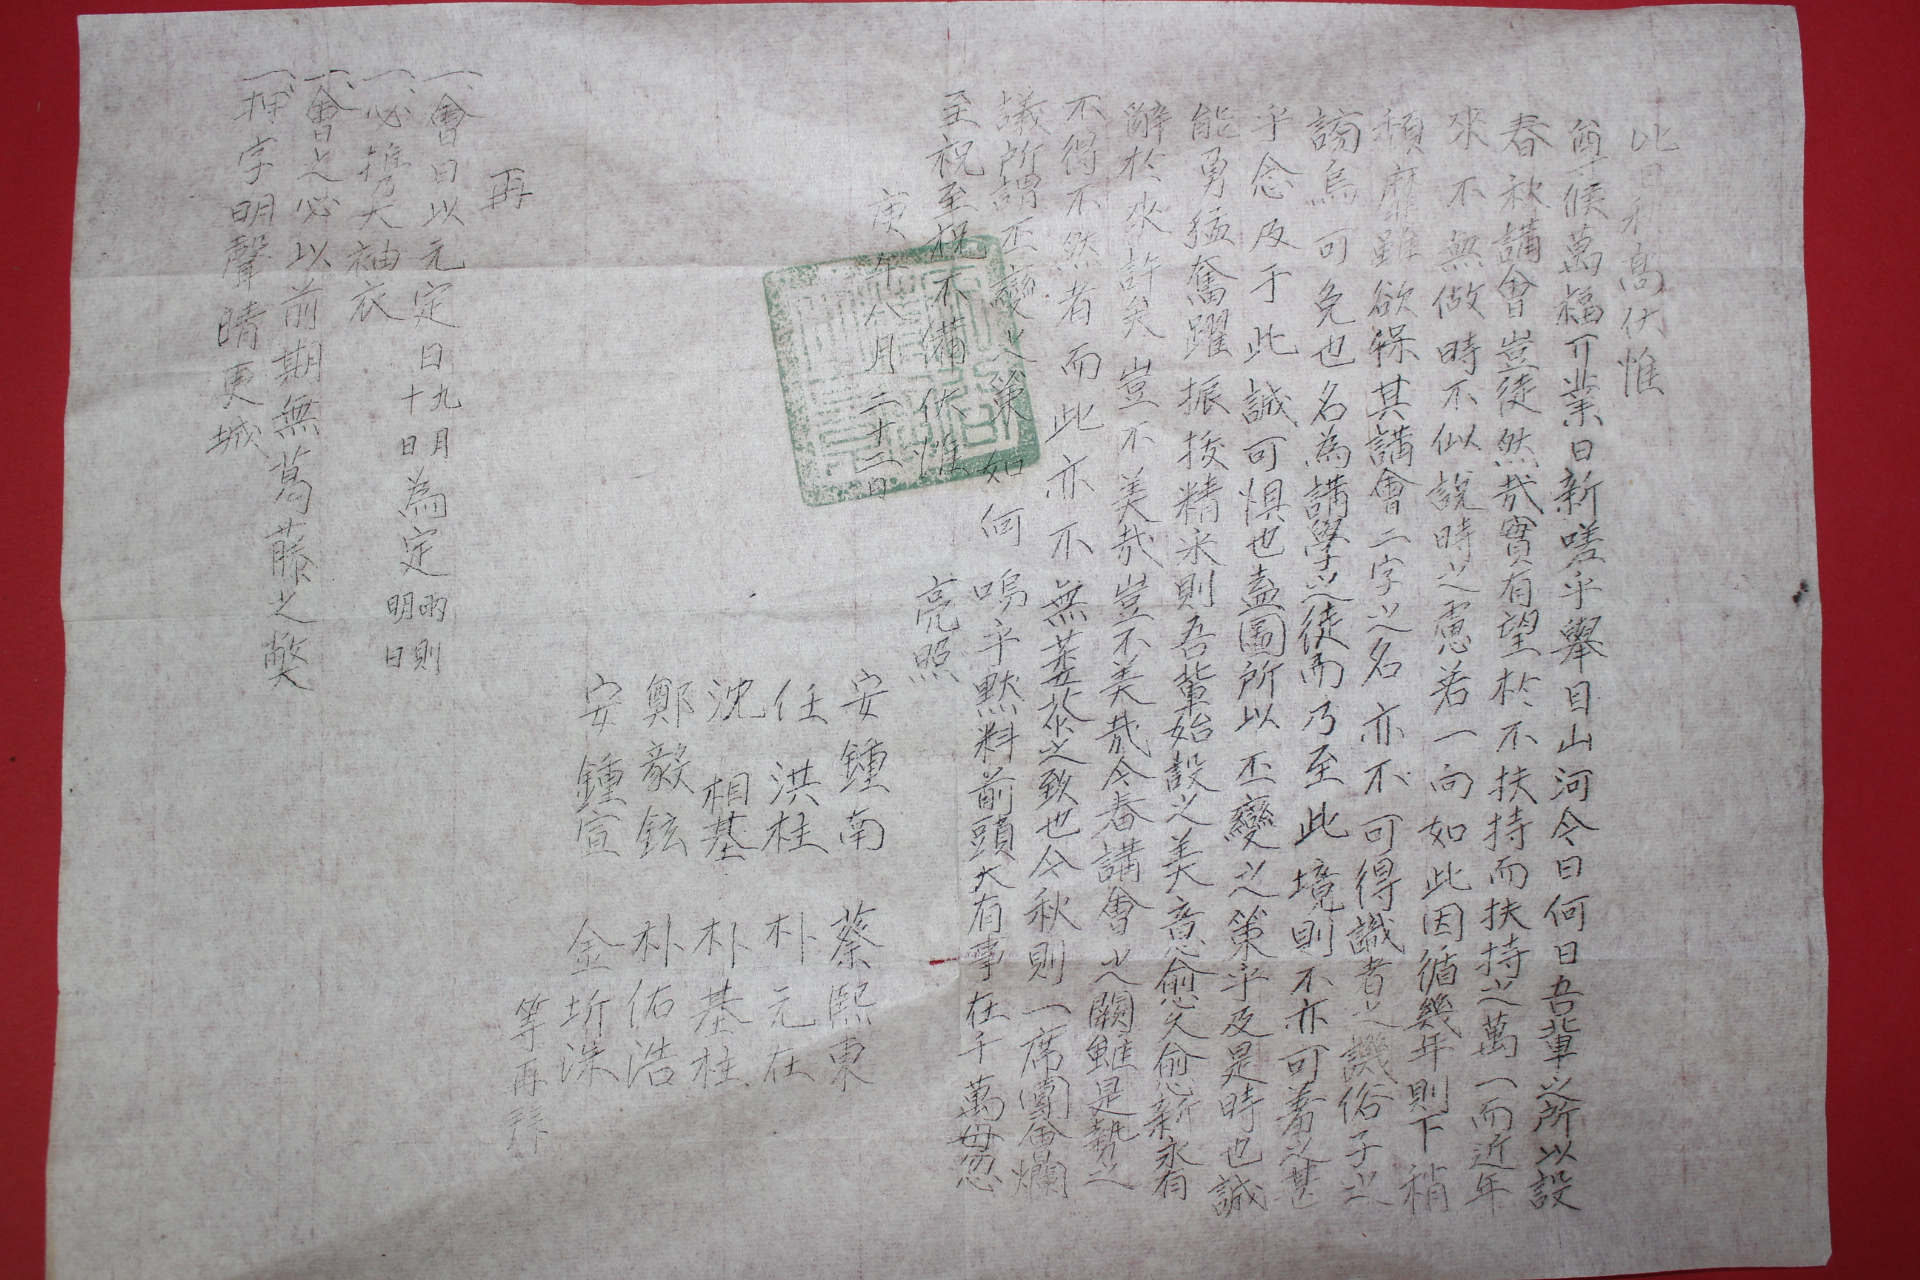 比日秋高伏惟
尊候萬福 業日新嗟乎擧目山河今日何日吾輩之所以設
春秋講會豈徒然哉實有望於不扶持而扶持之萬一而近年
來不無做時不似說時之慮若一向如此因循幾年則下稍
頹靡雖欲保其講會二字之名亦不可得識者之譏俗子之
謗烏可免也名為講學之徒而乃至此境則不亦可羞之甚
乎念及于此誠可惧也盍圖所以丕變之策乎及是時也誠
能勇猛奮躍振拨精 則吾輩始設之美意愈久愈新永有
辭於來許矣豈不美哉豈不美哉今春講會之闕雖是勢之
不得不然者而此亦不無 之致也今秋則一席團會爛
議所謂丕變之策如何嗚乎默料前頭大有事在千萬毋忽
至祝至祝不備伏惟
亮照
庚 年八月二十二日
安鍾南 蔡熙東
任洪柱 朴元在
沈相基 朴基柱
鄭毅鉉 朴佑浩
安鍾宣 金圻洙
等再拜
再
一會日以元定日九月十日為定雨則明日
一必携大袖衣
一會之必以前期無葛藤之弊
一 字明聲晴更城